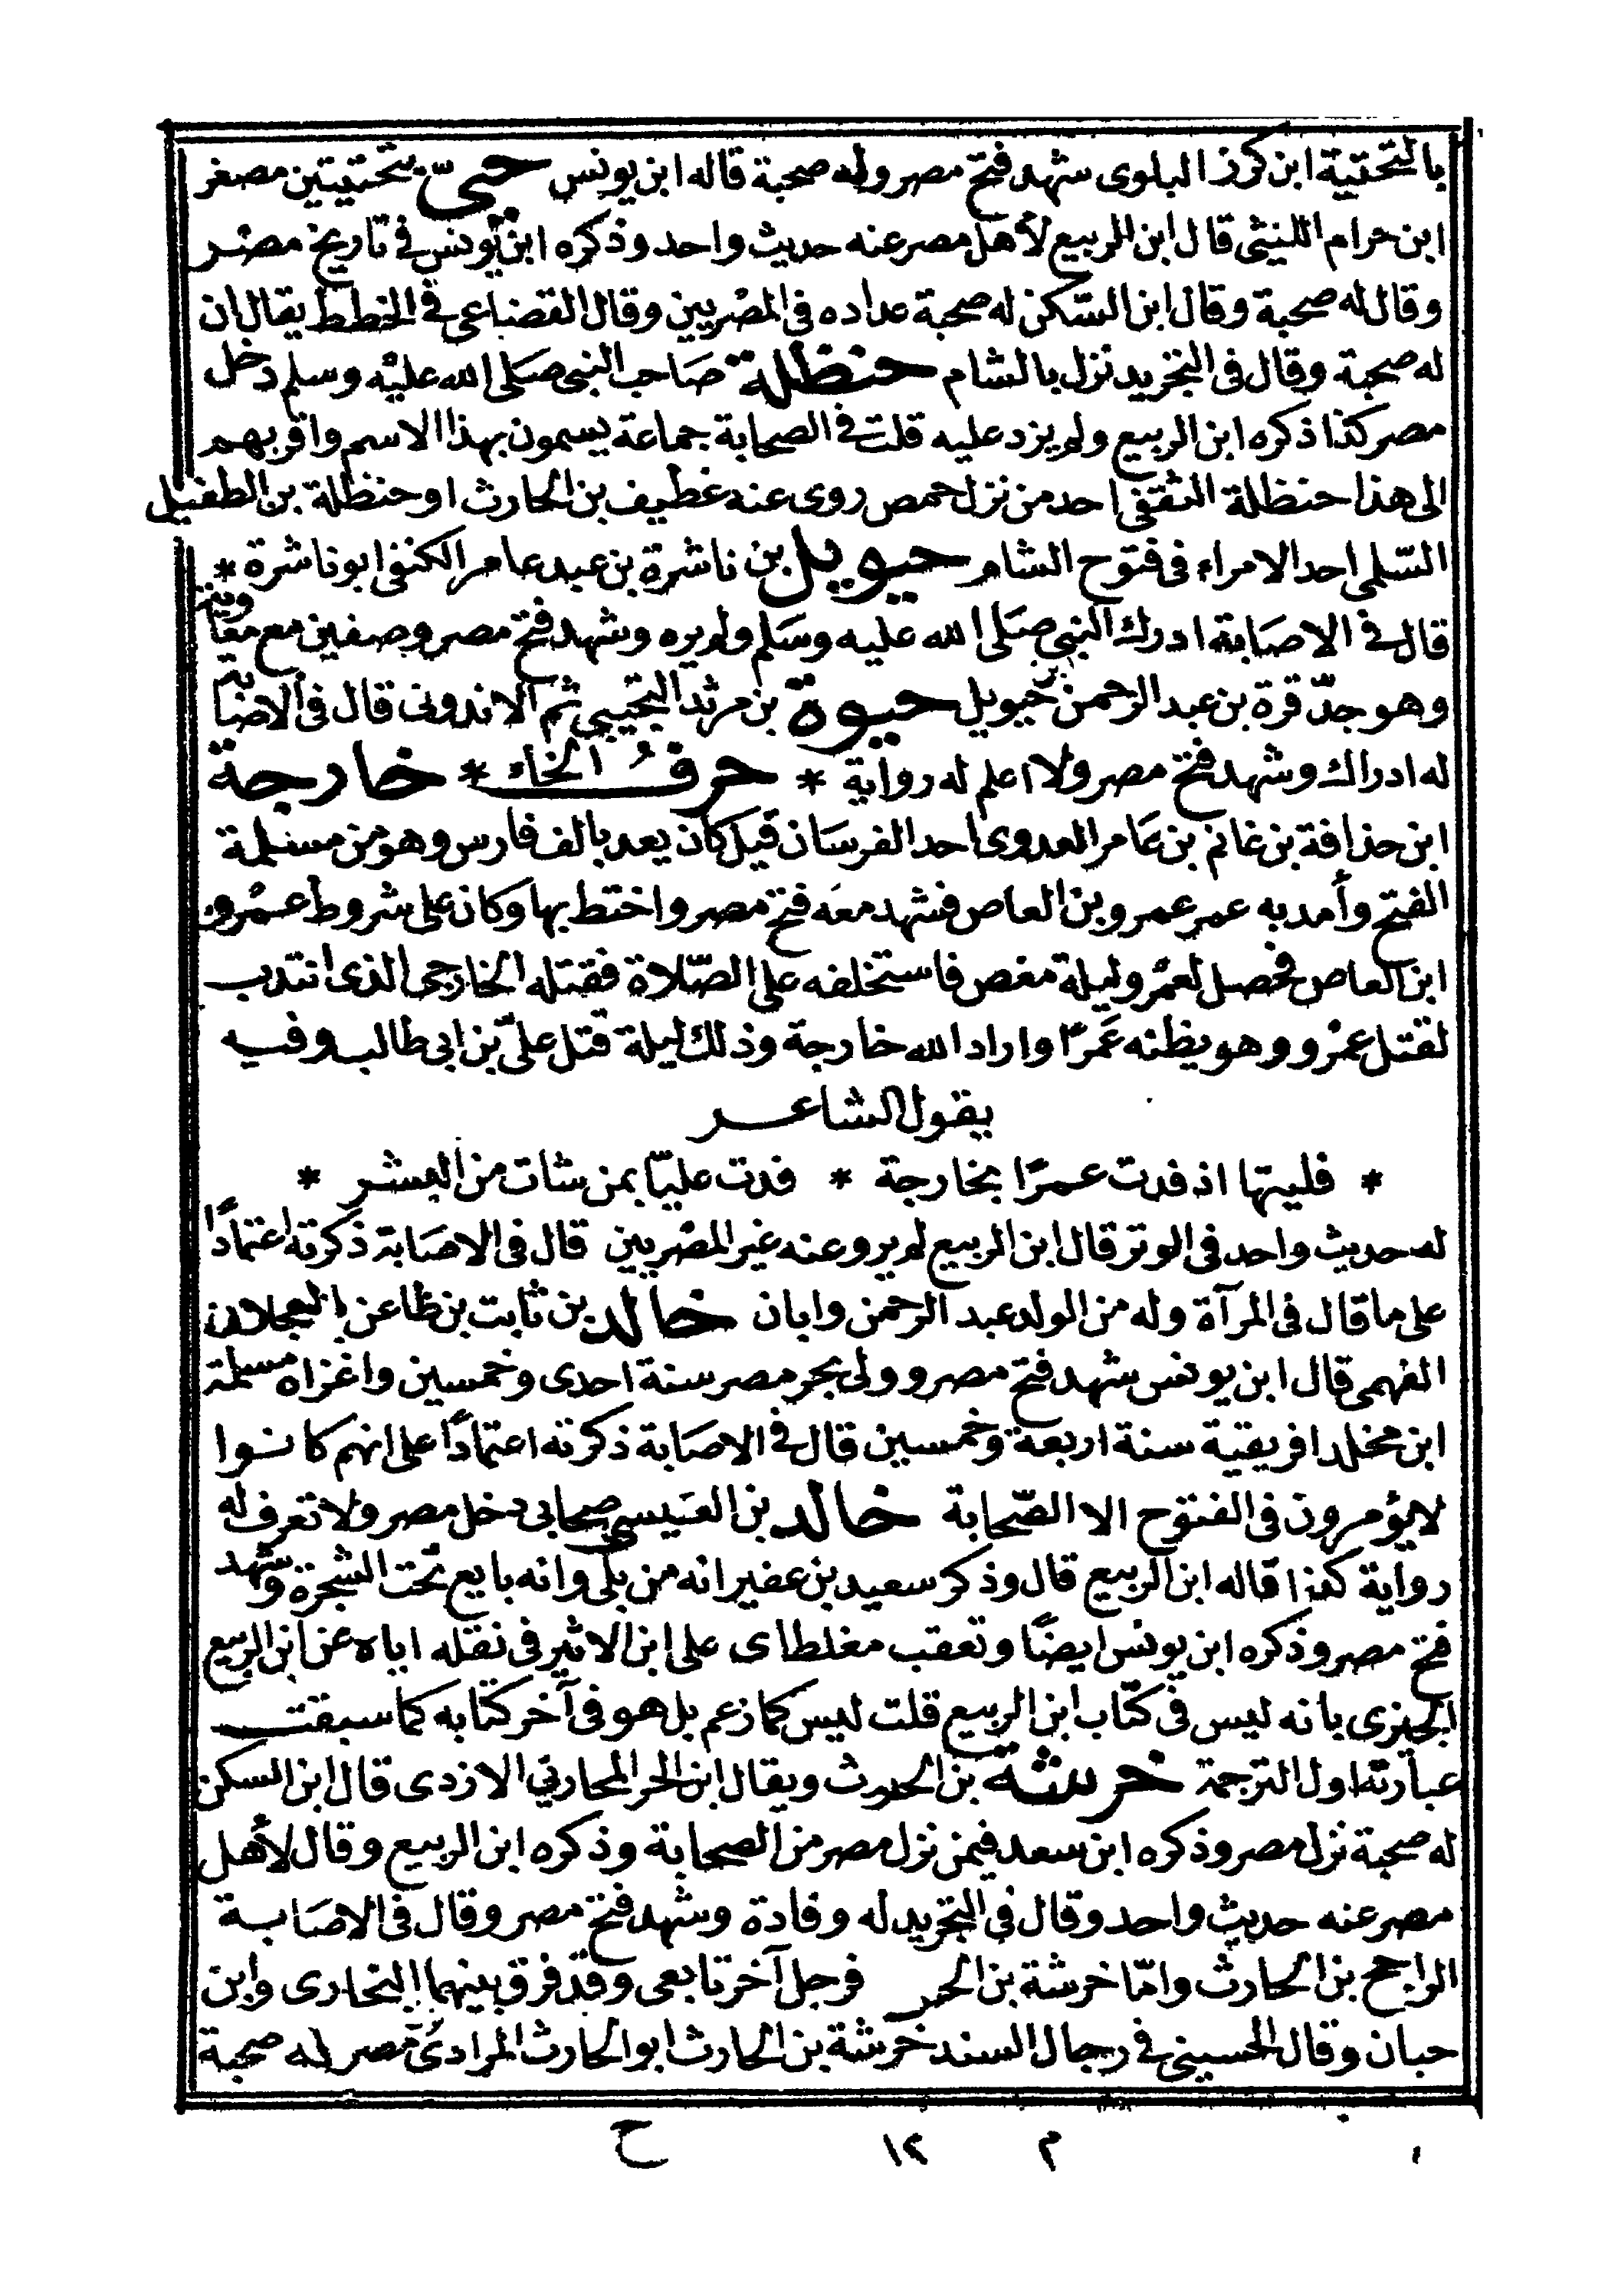 بالتحتية ابن كرز البلوى شهد فتح مصر وله صحبة قاله ابن يونس حيىّ بتحتيتين مصغر
ابن حرام الليثى قال ابن الربيع لأهل مصر عنه حديث واحد وذكره ابن يونس فى تاريخ مصر
وقال له صحبة وقال ابن السّكن له صحبة عداده فى المصريين وقال القضاعى فى الخطط يقال ان
له صحبة وقال فى التجريد نزل بالشام حنظلة صاحب النبى صلى الله عليه وسلم دخل
مصر كذا ذكره ابن الربيع ولم يزد عليه قلت فى الصحابة جماعة يسمون بهذا الاسم واقربهم
الى هذا حنظلة الثقفى احد من نزل حمص روى عنه غطيف بن الحارث او حنظلة بن الطفيل
السّلمى احد الامراء فى فتوح الشام حيويل بن ناشرة بن عبد عامر الكنفى ابو ناشرة *
قال فى الاصابة ادرك النبى صلى الله عليه وسلم ولم يره وشهد فتح مصر وصفين مع معاوية
وهو جدّ قرة بن عبد الرحمن بن حيويل حيوة بن مرثد التجيبى ثم الاندونى قال فى الاصابة
له ادراك وشهد فتح مصر ولا اعلم له رواية * حرفُ الخاء * خارجة
ابن حذافة بن غانم بن عامر العدوى احد الفرسان قيل كان يعد بالف فارس وهو من مسلمة
الفتح وأمد به عمر عمرو بن العاص فشهد معه فتح مصر واختط بها وكان على شروط عمرو
ابن العاص فحصل لعمرو ليلة مغص فاستخلفه على الصّلاة فقتله الخارجى الذى انتدب
لقتل عمرو وهو يظنه عَمرًا واراد الله خارجة وذلك ليلة قتل علىّ بن ابى طالب وفيه
يقول الشاعر
* فليتها اذ فدت عمرًا بخارجة * فدت عليّا بمن شات من البشر *
له حديث واحد فى الوتر قال ابن الربيع لم يرو عنه غير المصريين قال فى الاصابة ذكرته اعتمادًا
على ما قال فى المرآة وله من الولد عبد الرحمن وابان خالد بن ثابت بن ظاعن بن العجلان
الفهمى قال ابن يونس شهد فتح مصر وولى بحر مصر سنة احدى وخمسين واغزاه مسلمة
ابن مخلد افريقية سنة اربعة وخمسين قال فى الاصابة ذكرته اعتمادًا على انهم كانوا
لا يؤمرون فى الفتوح الا الصّحابة خالد بن العنبسى صحابى دخل مصر ولا تعرف له
رواية كذا قاله ابن الربيع قال وذكر سعيد بن عفير انه من بلى وانه بايع تحت الشجرة وشهد
فتح مصر وذكره ابن يونس ايضًا وتعقب مغلطاى على ابن الاثير فى نقله اياه عن ابن الربيع
الجيزى بانه ليس فى كتاب ابن الربيع قلت ليس كما زعم بل هو فى آخر كتابه كما سبقت
عبارته اول الترجمة خرشة بن الحرث ويقال ابن الحر المحاربى الازدى قال ابن السكن
له صحبة نزل مصر وذكره ابن سعد فيمن نزل مصر من الصحابة وذكره ابن الربيع وقال لأهل
مصر عنه حديث واحد وقال فى التجريد له وفادة وشهد فتح مصر وقال فى الاصابة
الراجح بن الحارث وامّا خرشة بن الحر فرجل آخر تابعى وقد فرق بينهما البخارى وابن
حبان وقال الحسينى فى رجال السند خرشة بن الحارث ابو الحارث المرادى مصر له صحبة
م ١٢ ح